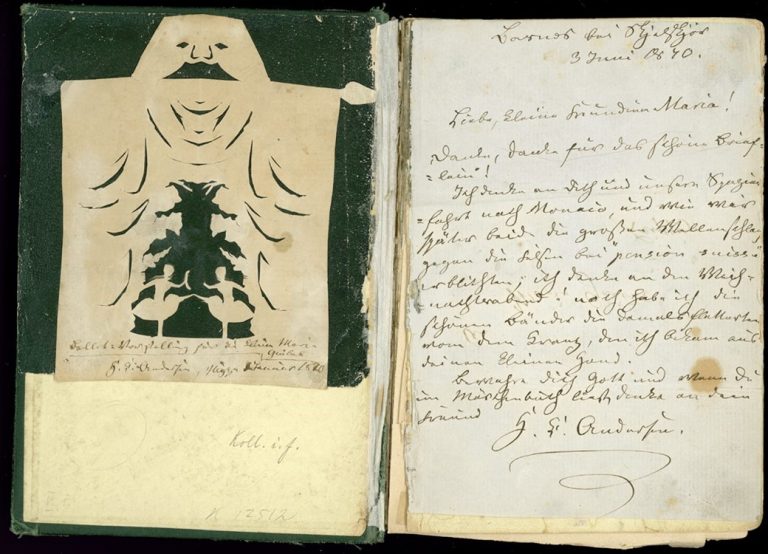 Ballet-Vorstellung für die kleine Maria
H. C. Andersen, Nizza Januar 1870
Koll. i. f.
N 12512
Basnes bei Skjelskjør
3 Juni 1870.
Liebe, kleine Freundin Maria!
Danke, Danke für das schöne Brief-
=lein!
Ich denke an Dich und unsere Spazier
=fahrt nach Monaco, und wie wir
später beide die großen Wellenschlag
gegen die Felsen bei "pension suisse"
erblickten; ich denke an den Weih-
nachtsabend! noch habe ich die
schönen Bänder die damals flatterten
vom dem Kranz, den ich bekam aus
deinen kleinen Hand.
Bewahre dich Gott und wenn Du
im Märchenbuch liest denke an dein
Freund
H. C. Andersen.